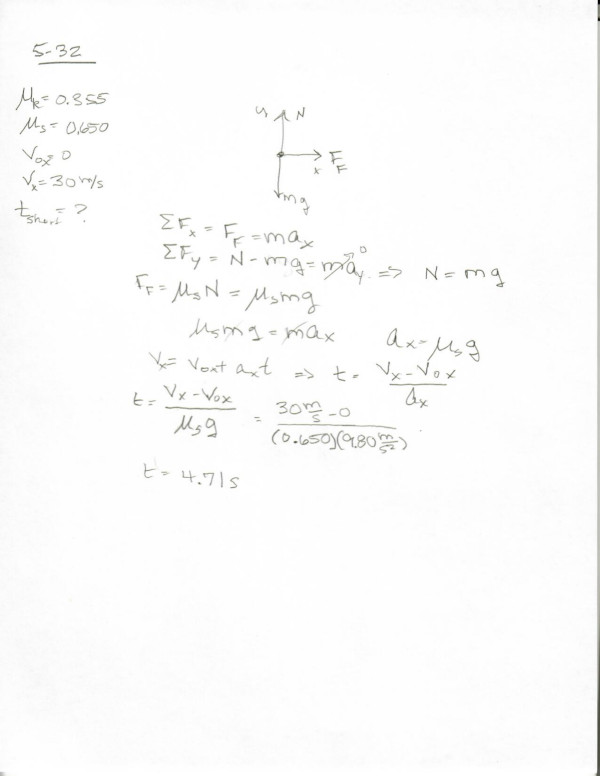 5-32
μk = 0.355
μs = 0.650
Vox = 0
Vx = 30 m/s
tshort = ?
y N
FF
x
mg
ΣFx = FF = max
ΣFy = N - mg = may 0 => N = mg
FF = μsN = μsmg
μsmg = max
ax = μsg
Vx = Vox + axt => t = (Vx - Vox)/ax
t = (Vx - Vox)/(μsg) = (30 m/s - 0)/((0.650)(9.80 m/s²))
t = 4.71 s